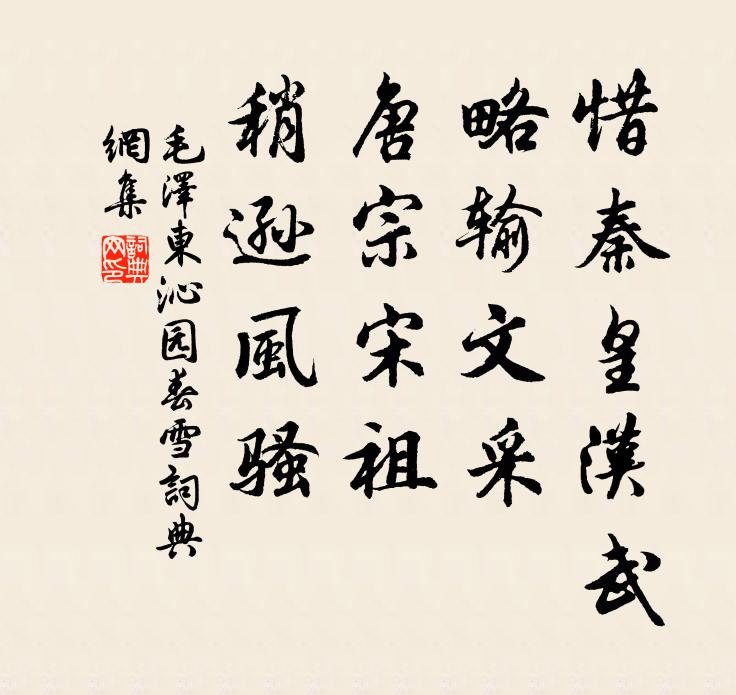 惜秦皇漢武
略输文采
唐宗宋祖
稍遜風骚
毛澤東沁园春雪詞典
網集
詞典
网印